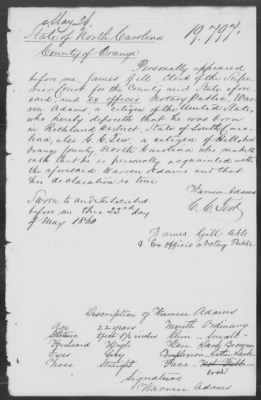 May 26.
19.797.
State of North Carolina
County of Orange
Personally appeared
before me, James Gill Clerk of the Supe
rior Court for the County and State afore
said and ex officio Notary Public, War
ren Adams a Citizen of the United States,
who hereby deposeth that he was born
in Richland District, State of South Caro
lina, also C. C. a citizen of Hillsboro
Orange County North Carolina who maketh
oath that he is personally acquainted with
the aforesaid Warren Adams and that
his declaration is true
Warren Adams
Sworn to and subscribed
C. C.
before me this 23rd day
of May 1860
James Gill
& Ex Officio Notary Public
Description of Warren Adams
Age 22 years Mouth Ordinary
Stature 5 feet 8 1/2 inches Chin Small
Forehead High Hair Dark Brown
Eyes Grey Complexion Rather Dark
Nose Straight Face
oval
Signature
Warren Adams